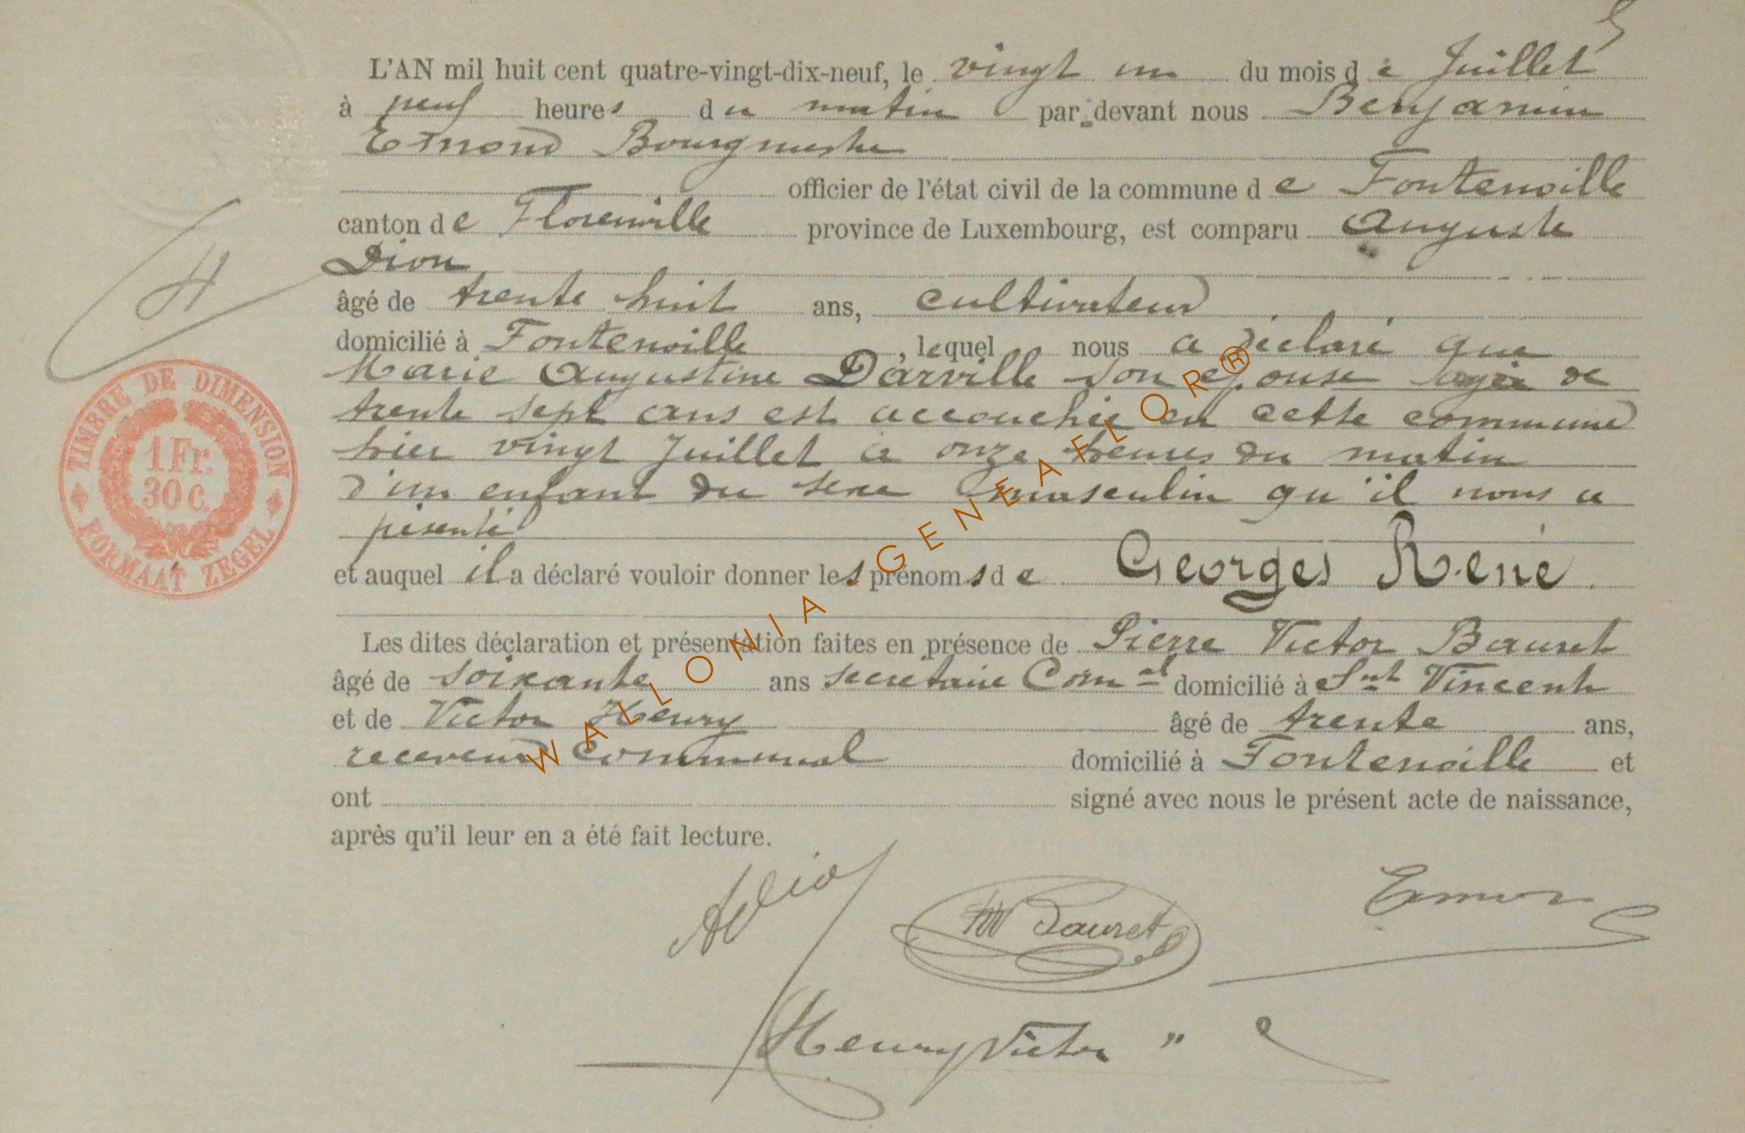 L'AN mil huit cent quatre-vingt-dix-neuf, le vingt un du mois de Juillet
à neuf heures du matin par devant nous Benjamin
Emond Bourgmestre
officier de l'état civil de la commune de Fontenoille
canton de Florenville province de Luxembourg, est comparu Auguste
Dion
âgé de trente huit ans, cultivateur
domicilié à Fontenoille, lequel nous a déclaré que
Marie Augustine Darville son épouse agée de
trente sept ans est accouchée en cette commune
hier vingt Juillet à onze heures du matin
d'un enfant du sexe masculin qu'il nous a
présenté
et auquel il a déclaré vouloir donner les prénoms de Georges René
Les dites déclaration et présentation faites en présence de Pierre Victor Bauret
âgé de soixante ans secrétaire Com^al domicilié à S^nt Vincent
et de Victor Henry âgé de trente ans,
receveur communal domicilié à Fontenoille et
ont signé avec nous le présent acte de naissance,
après qu'il leur en a été fait lecture.
ADion
Bauret
Emond
Henry Victor
H
TIMBRE DE DIMENSION
1 Fr.
30 C.
FORMAAT ZEGEL
WALLONIA GENEAFLOR®